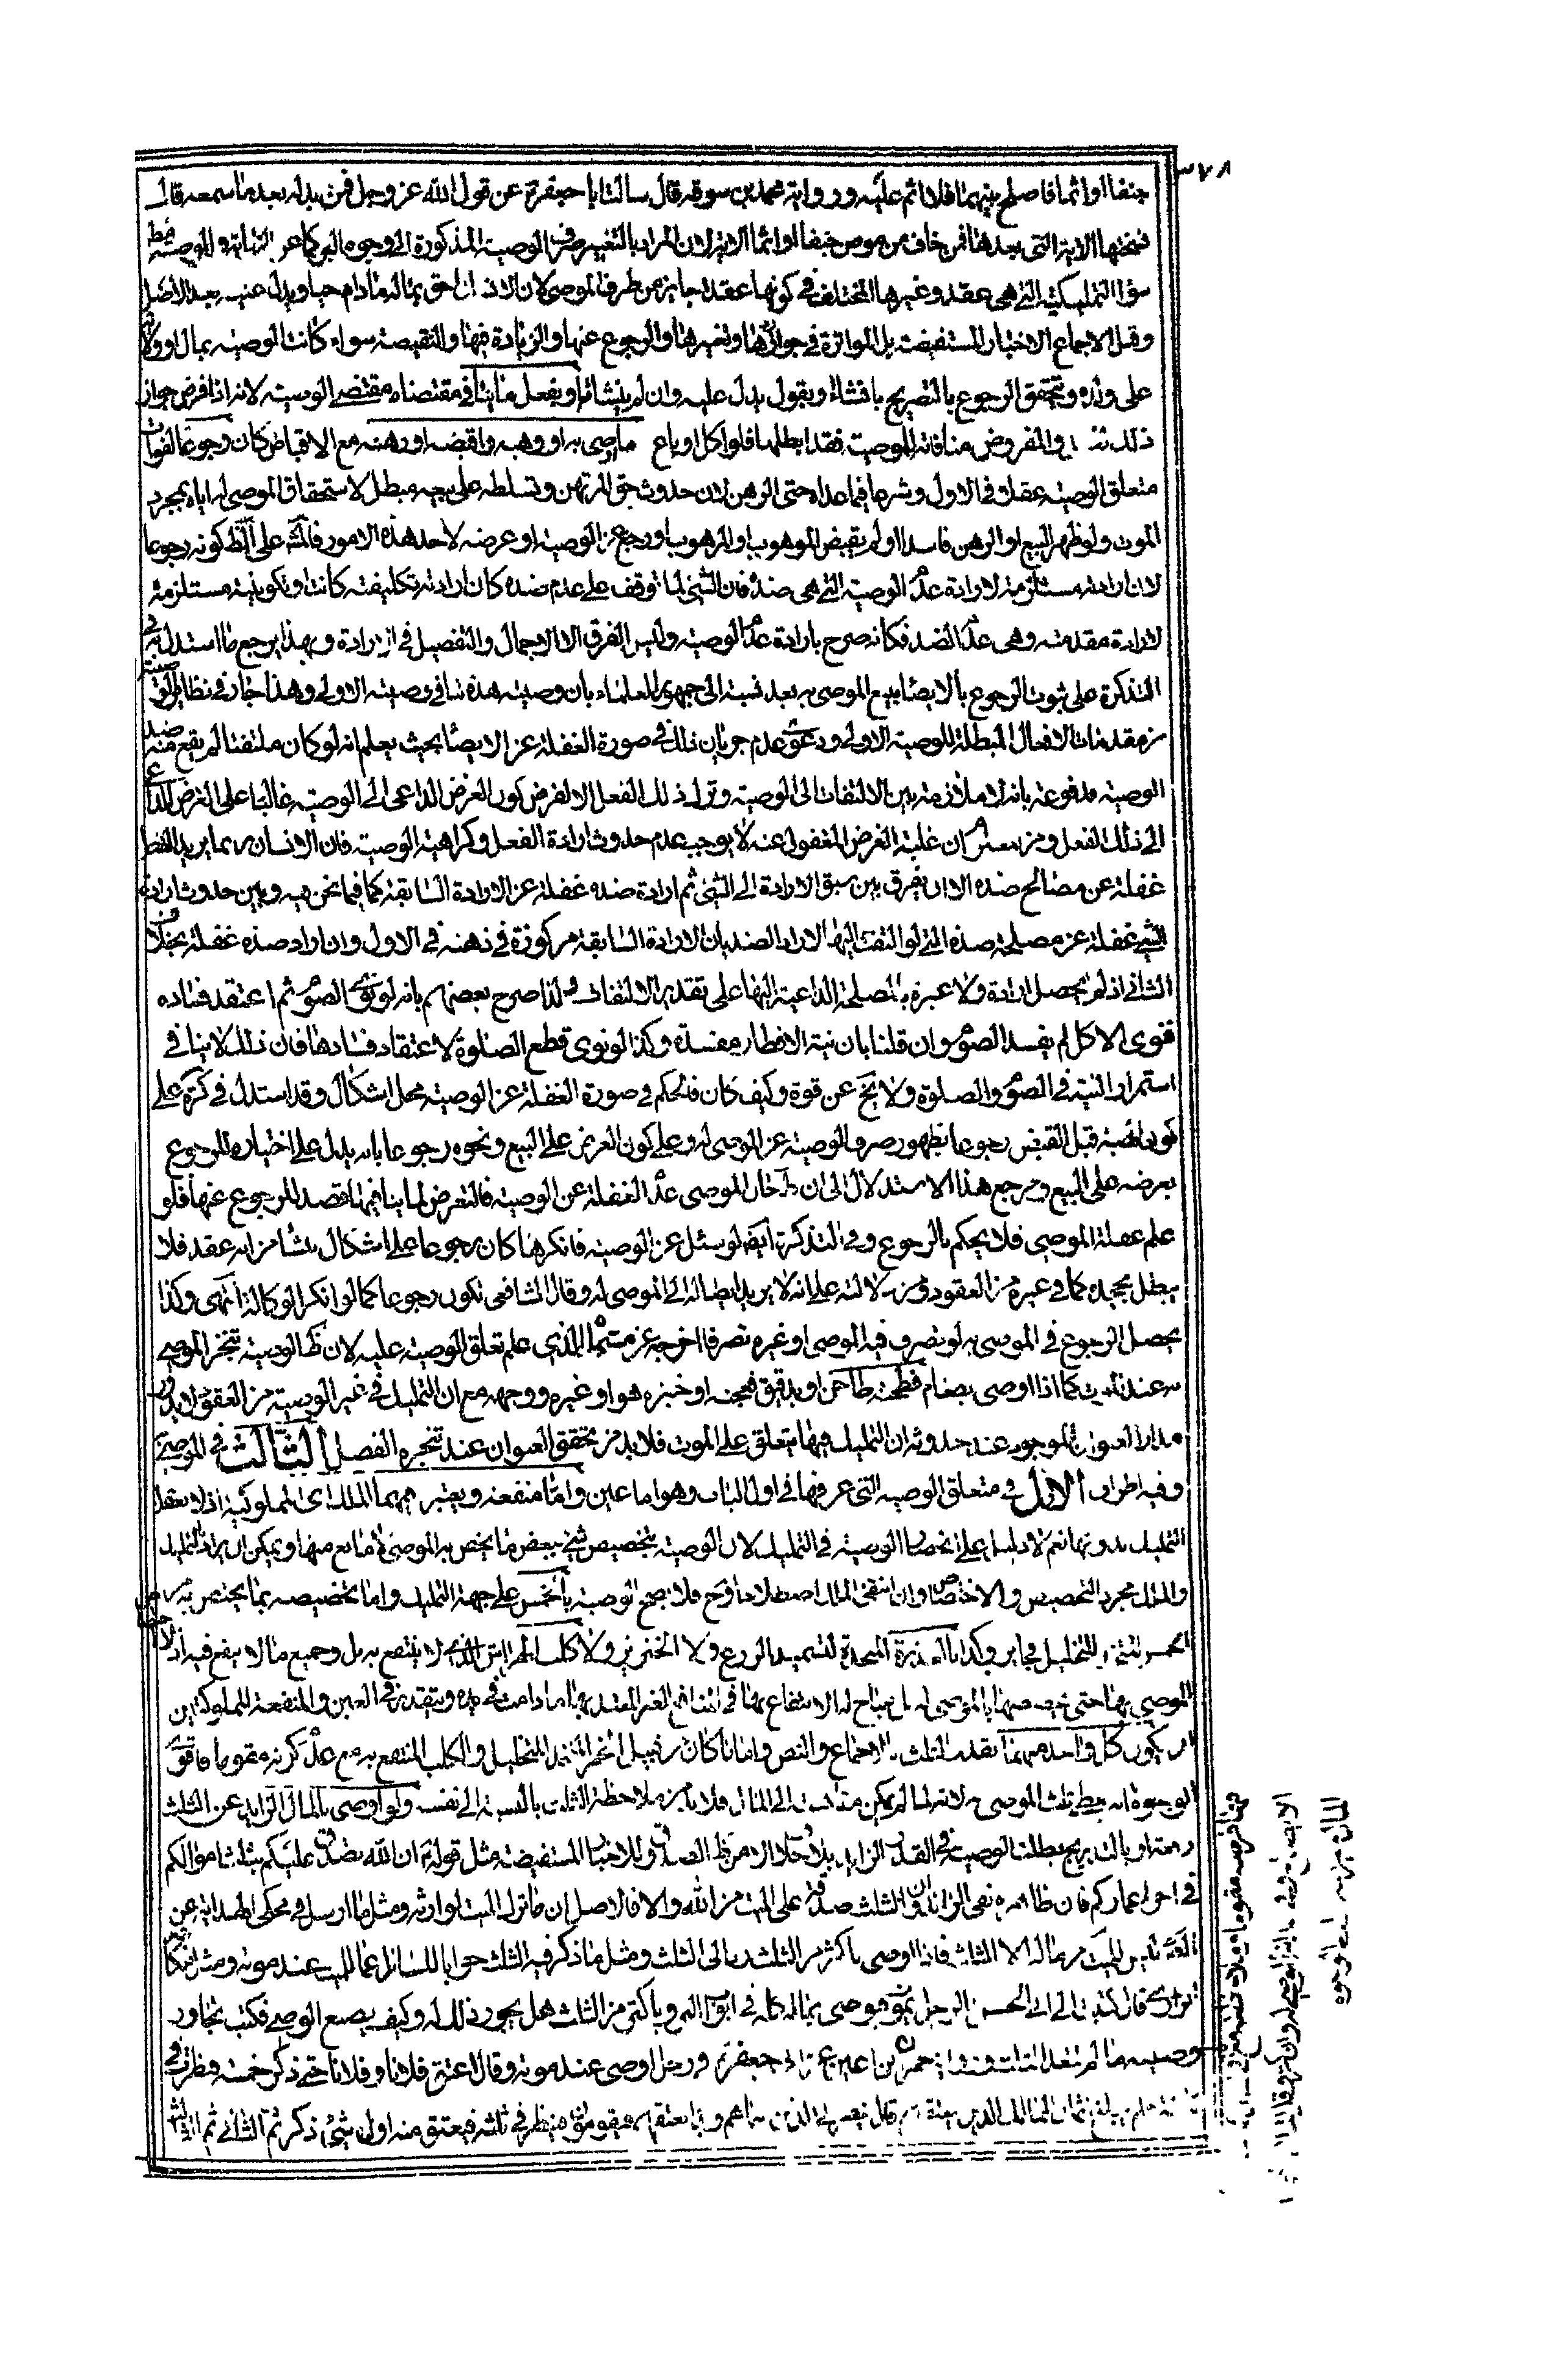 ٣٧٨
جنفا او اثما فاصلح بينهما فلا اثم عليه ورواية محمد بن سوقه قال سالت ابا جعفر ع عن قول الله عز وجل فمن بدله بعد ما سمعه قال
نسختها الاية التى بعدها فمن خاف من موص جنفا او اثما الاية لان المراد بالتغيير صرف الوصية المذكورة الى وجوه البر كما عر
سؤا التمليكية التى هى عقد وغيرها المختلف فى كونها عقد جايز من طرف الموصى لان الانسان احق بماله ما دام حيا ويدل عليه بعد الاصل
ونقل الاجماع الاخبار المستفيضة بل المتواترة فى جوازها وتغييرها والرجوع عنها والزيادة فيها والنقيصة سواء كانت الوصية بمال او ولاية
على ولده ويتحقق الرجوع بالتصريح بانشائه وبقول يدل عليه وان لم ينشا به او بفعل ما ينافى مقتضاه مقتضى الوصية لانه اذا فرض جواز
ذلك والمفروض منافاته للوصية فقد ابطلها فلو اكل او باع ما اوصى به او وهبه واقبضه او رهنه مع الاقباض كان رجوعا لفوات
متعلق الوصية عقلا فى الاول وشرعا فيما عداه حتى الرهن لان حدوث حق المرتهن وتسلطه على بيعه مبطل لاستحقاق الموصى له اياه بمجرد
الموت ولو ظهر البيع او الرهن فاسدا او لم يقبض الموهوب او المرهوب او رجع عن الوصية او عرضه لاحد هذه الامور فالمشه على الظ كونه رجوعا
لان ارادته مستلزمة لارادة عدم الوصية التى هى ضده فان الشئ لما توقف على عدم ضده كان ارادته تكليفية كانت او تكوينية مستلزمة
لارادة مقدمته وهى عدم الضد فكانه صرح بارادة عدم الوصية وليس الفرق الا الاجمال والتفصيل فى الارادة وبهذا يرجع ما استدل به فى
التذكرة على ثبوت الرجوع بالايصاء ببيع الموصى به بعد نسبته الى جمهور العلماء بان وصيته هذه تنافى وصيته الاولى وهذا جار فى نظاير الوصية
من مقدمات الافعال المبطلة للوصية الاولى ودعوى عدم جريان ذلك فى صورة الغفلة عن الايصاء بحيث يعلم انه لو كان ملتفتا لم يقع منه ضد
الوصية مدفوعة بانه لا ملازمة بين الالتفات الى الوصية وترك ذلك الفعل الا لفرض كون الغرض الداعى الى الوصية غالبا على الغرض الداعى
الى ذلك الفعل ومن ان غلبة الغرض المغفول عنه لا يوجب عدم حدوث ارادة الفعل وكراهية الوصية فان الانسان ربما يريد الفعل
غفلة عن مصالح ضده الا ان يفرق بين سبق الارادة الى الشئ ثم ارادة ضده غفلة عن الارادة السابقة كما فيما نحن فيه وبين حدوث ارادة
الشئ غفلة عن مصلحة ضده التى لو التفت اليها لاراد الضد بان الارادة السابقة مركوزة فى ذهنه فى الاول وان اراد ضده غفلة بخلاف
الثانى اذ لم يحصل ارادة ولا عبرة بالمصلحة الداعية اليها على تقدير الالتفات ولذا صرح بعضهم بانه لو نوى الصوم ثم اعتقد فساده
فنوى الاكل لم يفسد الصوم وان قلنا بان نية الافطار مفسدة وكذا لو نوى قطع الصلوة لاعتقاد فسادها فان ذلك لا ينافى
استمرار النية فى الصوم والصلوة ولا يخ عن قوة وكيف كان فالحكم فى صورة الغفلة عن الوصية محل اشكال وقد استدل فى كرة على
كون الهبة قبل القبض رجوعا بظهور صرف الوصية عن الموصى له وعلى كون العرض على البيع ونحوه رجوعا بانه يدل على اختياره للرجوع
بعرضه على البيع ومرجع هذا الاستدلال الى ان ظ حال الموصى عدم الغفلة عن الوصية فالتعرض لما ينافيها قصد للرجوع عنها فلو
علم غفلة الموصى فلا يحكم بالرجوع وفى التذكرة ايضا لو سئل عن الوصية فانكرها كان رجوعا على اشكال ينشا من انه عقد فلا
يبطل بجحده كما فى غيره من العقود ومن دلالته على انه لا يريد ايصاله الى الموصى له وقال الشافعى تكون رجوعا كما لو انكر الوكالة انتهى وكذا
يحصل الرجوع فى الموصى به لو تصرف فيه الموصى او غيره تصرفا اخرجه عن مسماه الذى علم تعلق الوصية عليه لان ظ الوصية تنجز الموصى
به عند الموت كما اذا اوصى بطعام فطحنه طاحن او بدقيق فعجنه او خبزه هو او غيره ووجهه مع ان التمليك فى غير الوصية من العقود لا يدور
مدار العنوان الموجود عند حدوثه ان التمليك فيها متعلق على الموت فلا بد من تحقق العنوان عند تنجزه الفصل الثالث فى الموصى به
وفيه اطراف الاول فى متعلق الوصية التى عرفها فى اول الباب وهو اما عين واما منفعة ويعتبر فيهما الملك اى المملوكية اذ لا يعقل
التمليك بدونها نعم لا دليل على انحصار الوصية فى التمليك لان الوصية بتخصيص شئ ببعض ما يختص به الموصى لا مانع منها ويمكن ان يراد بالتمليك
والملك مجرد التخصيص والاختصاص وان انتفى المال اصطلاحا وح فلا يصح الوصية بالخمر على جهة التمليك واما تخصيصه بما يختص به من
الخمر للتخليل فجايز وكذا بالعذرة المتخذة لتسميد الزرع ولا الخنزير ولا كلب الهراش الذى لا ينتفع به بل وجميع ما لا ينفع فيه اذ لا
الموصى بها حتى يخصصها بالموصى له بل يباح له الانتفاع بها فى المنافع الغير المعتد بها ما دامت فى يده ويتقدر فى العين والمنفعة المملوكين
ان يكون كل واحد منهما بقدر الثلث بالاجماع والنص واما ما كان من قبيل الخمر المتخذ للتخليل والكلب المنتفع به مع عدم كونه متقوما فاقوى
الوجوه انه يعطى ثلث الموصى به لانه لما لم يمكن مقايسته الى المال فلا بد من ملاحظة الثلث بالنسبة الى نفسه ولو اوصى بالمال الزايد عن الثلث
دفعة او بالتدريج بطلت الوصية فى القدر الزايد بلا خلاف الا من ظ الصدوق وللاخبار المستفيضة مثل قوله ع ان الله تصدق عليكم بثلث اموالكم
فى اخر اعماركم فان ظاهره نفى الزايد لان الثلث صدقة على الميت من الله والا فالاصل ان ما ترك الميت لوارثه ومثل ما ارسل فى محكى الهداية عن
ليس للميت من ماله الا الثلث فاذا اوصى باكثر من الثلث رد الى الثلث ومثل ما ذكر فيه الثلث جوابا للسائل عما للميت عند موته ومثل
قال كتبت الى ابى الحسن الرجل يموت فيوصى بماله كله فى ابواب البر وباكثر من الثلث هل يجوز ذلك له وكيف يصنع الوصى فكتب تجاوز
وصيته ما لم يتعد الثلث وفى رواية حمران بن اعين عن ابى جعفر ع فى رجل اوصى عند موته وقال اعتق فلانا وفلانا حتى ذكر خمسة فنظرت فى
ثلثه فلم يبلغ اثمان المماليك الذين امر بعتقهم قال ينظر الى الذين سماهم وبدا بعتقهم فيقومون وينظر فى ثلثه فيعتق منه اول شئ ذكر ثم الثانى ثم الثالث